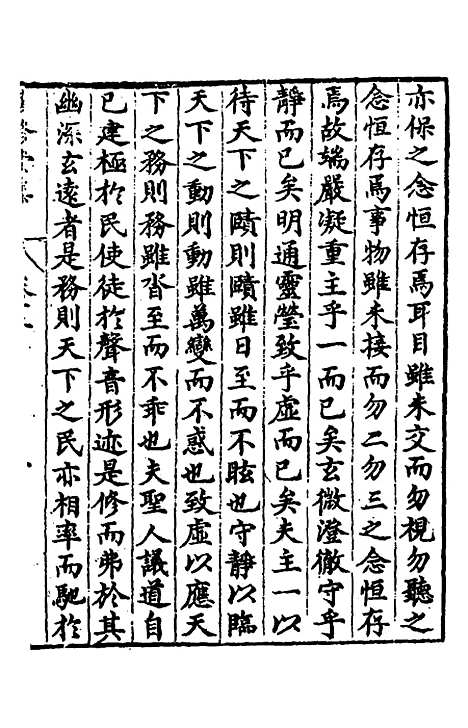 亦保之念恒存焉耳目雖未交而勿視勿聽之
念恒存焉事物雖未接而勿二勿三之念恒存
焉故端嚴凝重主乎一而已矣玄微澄徹守乎
靜而已矣明通靈瑩致乎虛而已矣夫主一以
待天下之賾則賾雖日至而不眩也守靜以臨
天下之動則動雖萬變而不惑也致虛以應天
下之務則務雖沓至而不乖也夫聖人議道自
已建極於民使徒於聲音形迹是修而弗於其
幽深玄遠者是務則天下之民亦相率而馳於